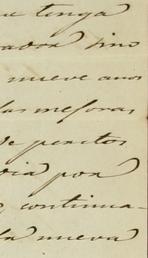 ue tenga
rador sino
nueve años
las mejoras
de peritos
via por
continua-
la nueva